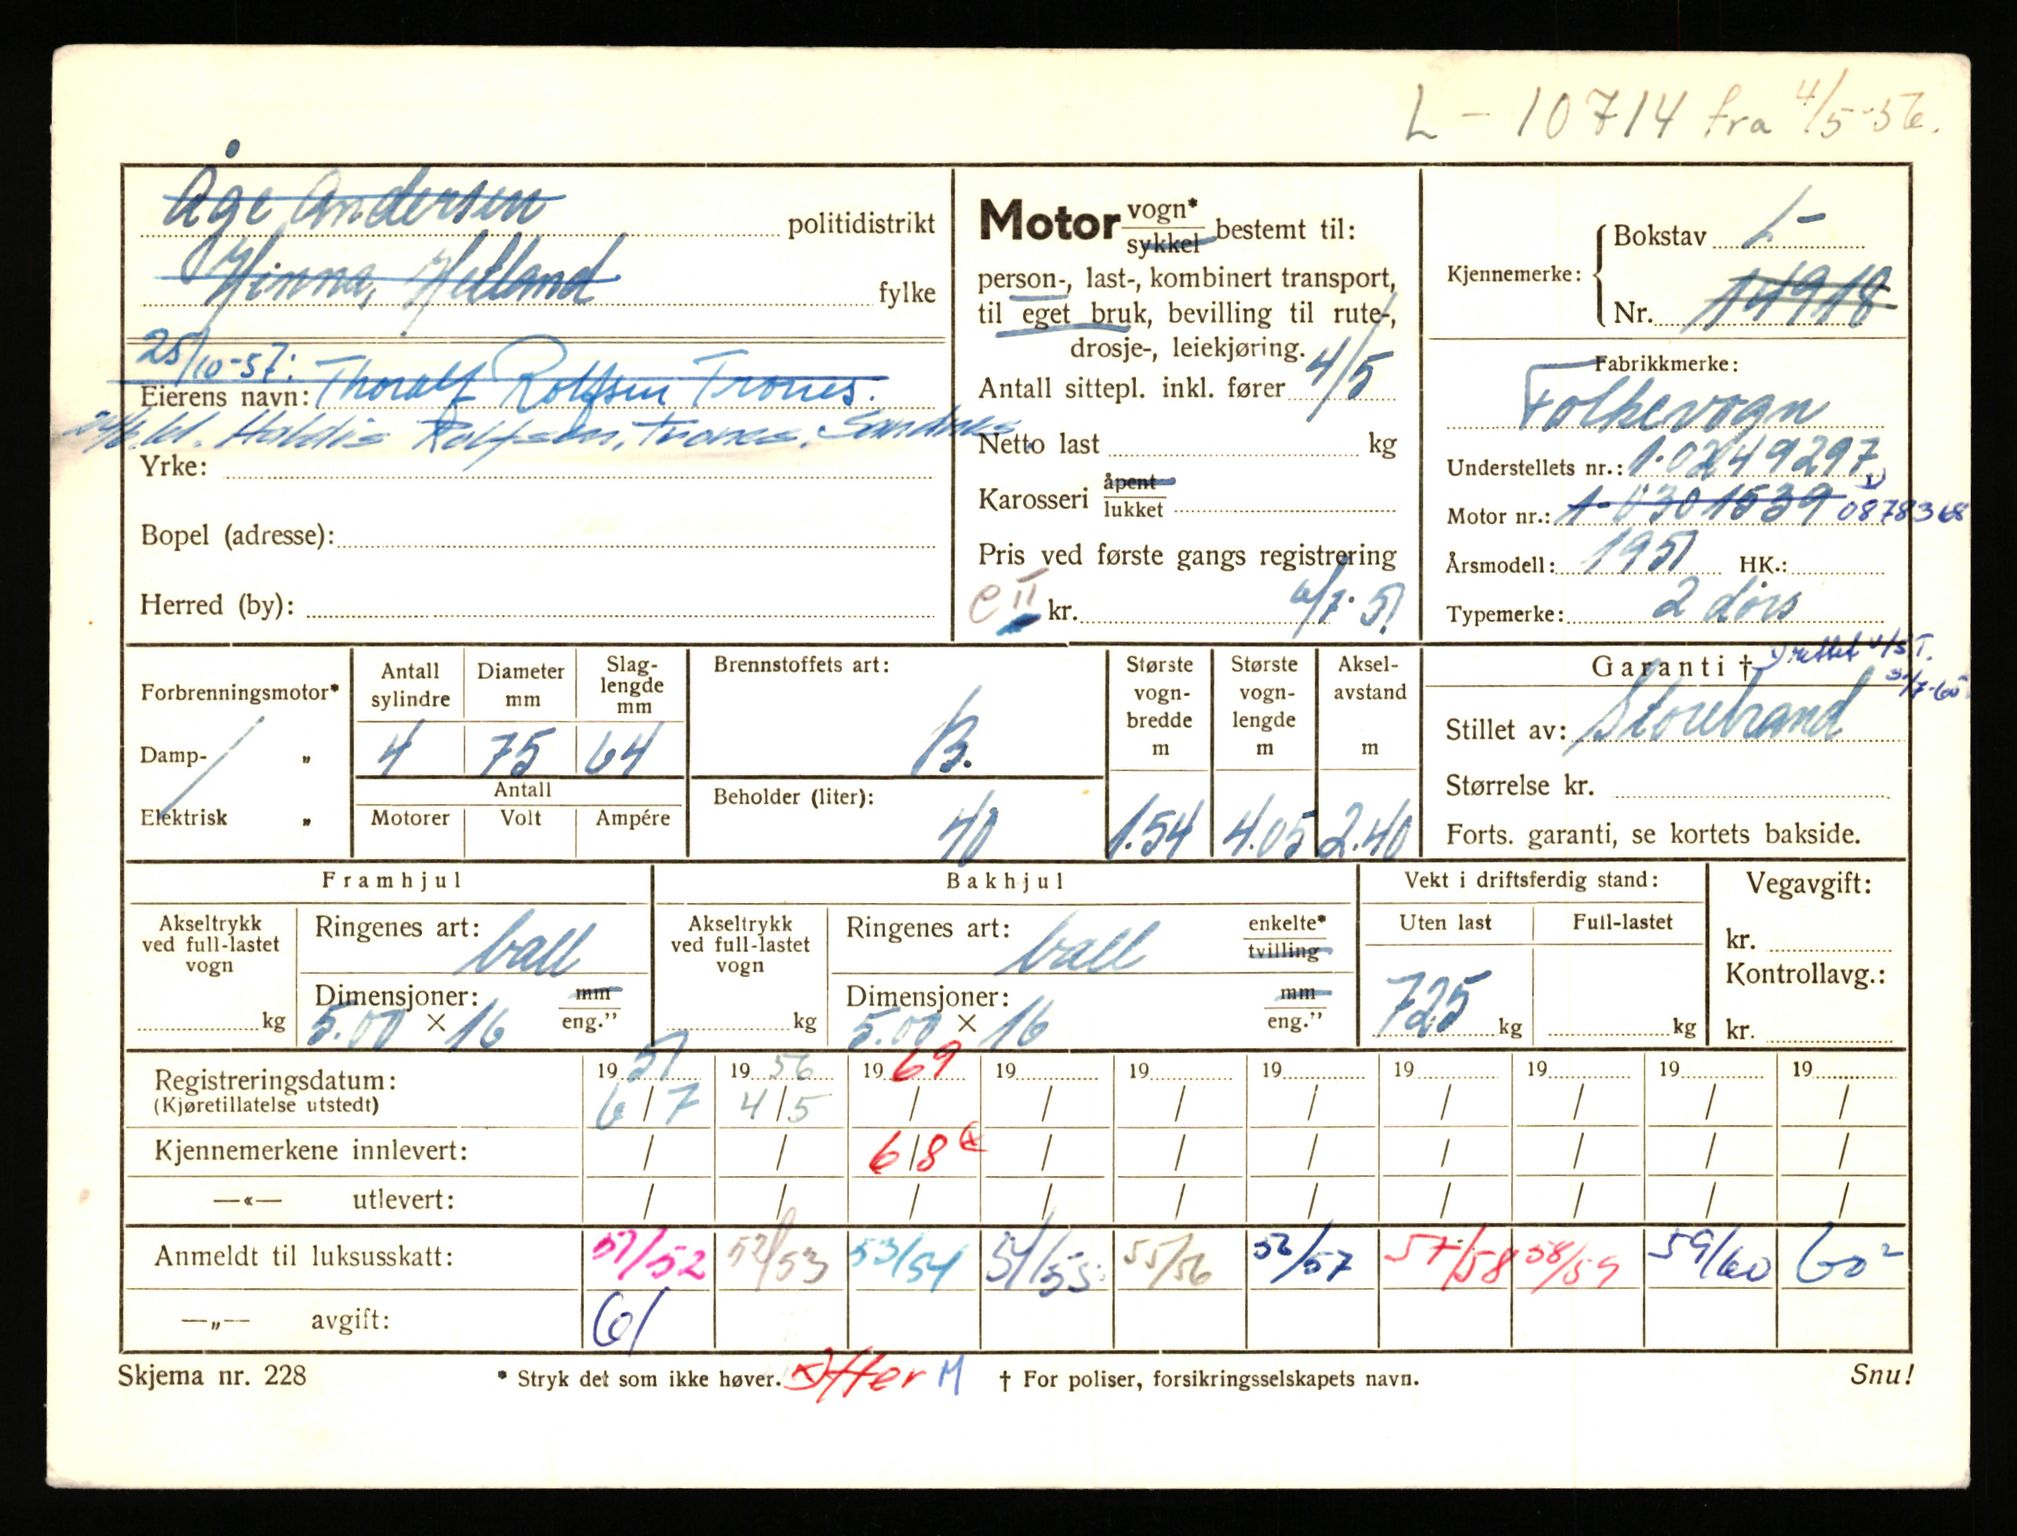 L - 10714 fra 4/5-56.
Åge Andersen politidistrikt
Hinna, Hetland fylke
25/10-57: Thoralf Rolfsen Trones.
Eierens navn:
Haldis Rolfsen, Trones, Sandnes
Yrke:
Bopel (adresse):
Herred (by):
Motor vogn* sykkel bestemt til:
person-, last-, kombinert transport,
til eget bruk, bevilling til rute-,
drosje-, leiekjøring.
Antall sittepl. inkl. fører 4/5
Netto last kg
Karosseri åpent lukket
Pris ved første gangs registrering
e II kr. 6/7-51
Kjennemerke: Bokstav L-
Nr. 14918
Fabrikkmerke:
Folkevogn
Understellets nr.: 1-0249297
Motor nr.: 1-0301539 0878368
Årsmodell: 1951 HK.:
Typemerke: 2 dørs
Forbrenningsmotor*
Damp- "
Elektrisk "
Antall sylindre 4
Diameter mm 75
Slag-lengde mm 64
Antall
Motorer Volt Ampére
Brennstoffets art: B.
Beholder (liter): 40
Største vogn-bredde m 1.54
Største vogn-lengde m 4.05
Aksel-avstand m 2.40
Garanti †
Stillet av: Storebrand
Størrelse kr.
Forts. garanti, se kortets bakside.
Framhjul
Akseltrykk ved full-lastet vogn kg
Ringenes art: ball
Dimensjoner: mm eng."
5.00 × 16
Bakhjul
Akseltrykk ved full-lastet vogn kg
Ringenes art: ball enkelte* tvilling
Dimensjoner: mm eng."
5.00 × 16
Vekt i driftsferdig stand:
Uten last Full-lastet
725 kg kg
Vegavgift:
kr.
Kontrollavg.:
kr.
Registreringsdatum: 1951 1956 1969 19 19 19 19 19 19 19
(Kjøretillatelse utstedt) 6/7 4/5 / / / / / / / /
Kjennemerkene innlevert: / / 6/8 / / / / / / /
—«— utlevert: / / / / / / / / / /
Anmeldt til luksusskatt: 51/52 52/53 53/54 54/55 55/56 56/57 57/58 58/59 59/60 60²
—„— avgift: 61
Skjema nr. 228 * Stryk det som ikke høver. M † For poliser, forsikringsselskapets navn. Snu!